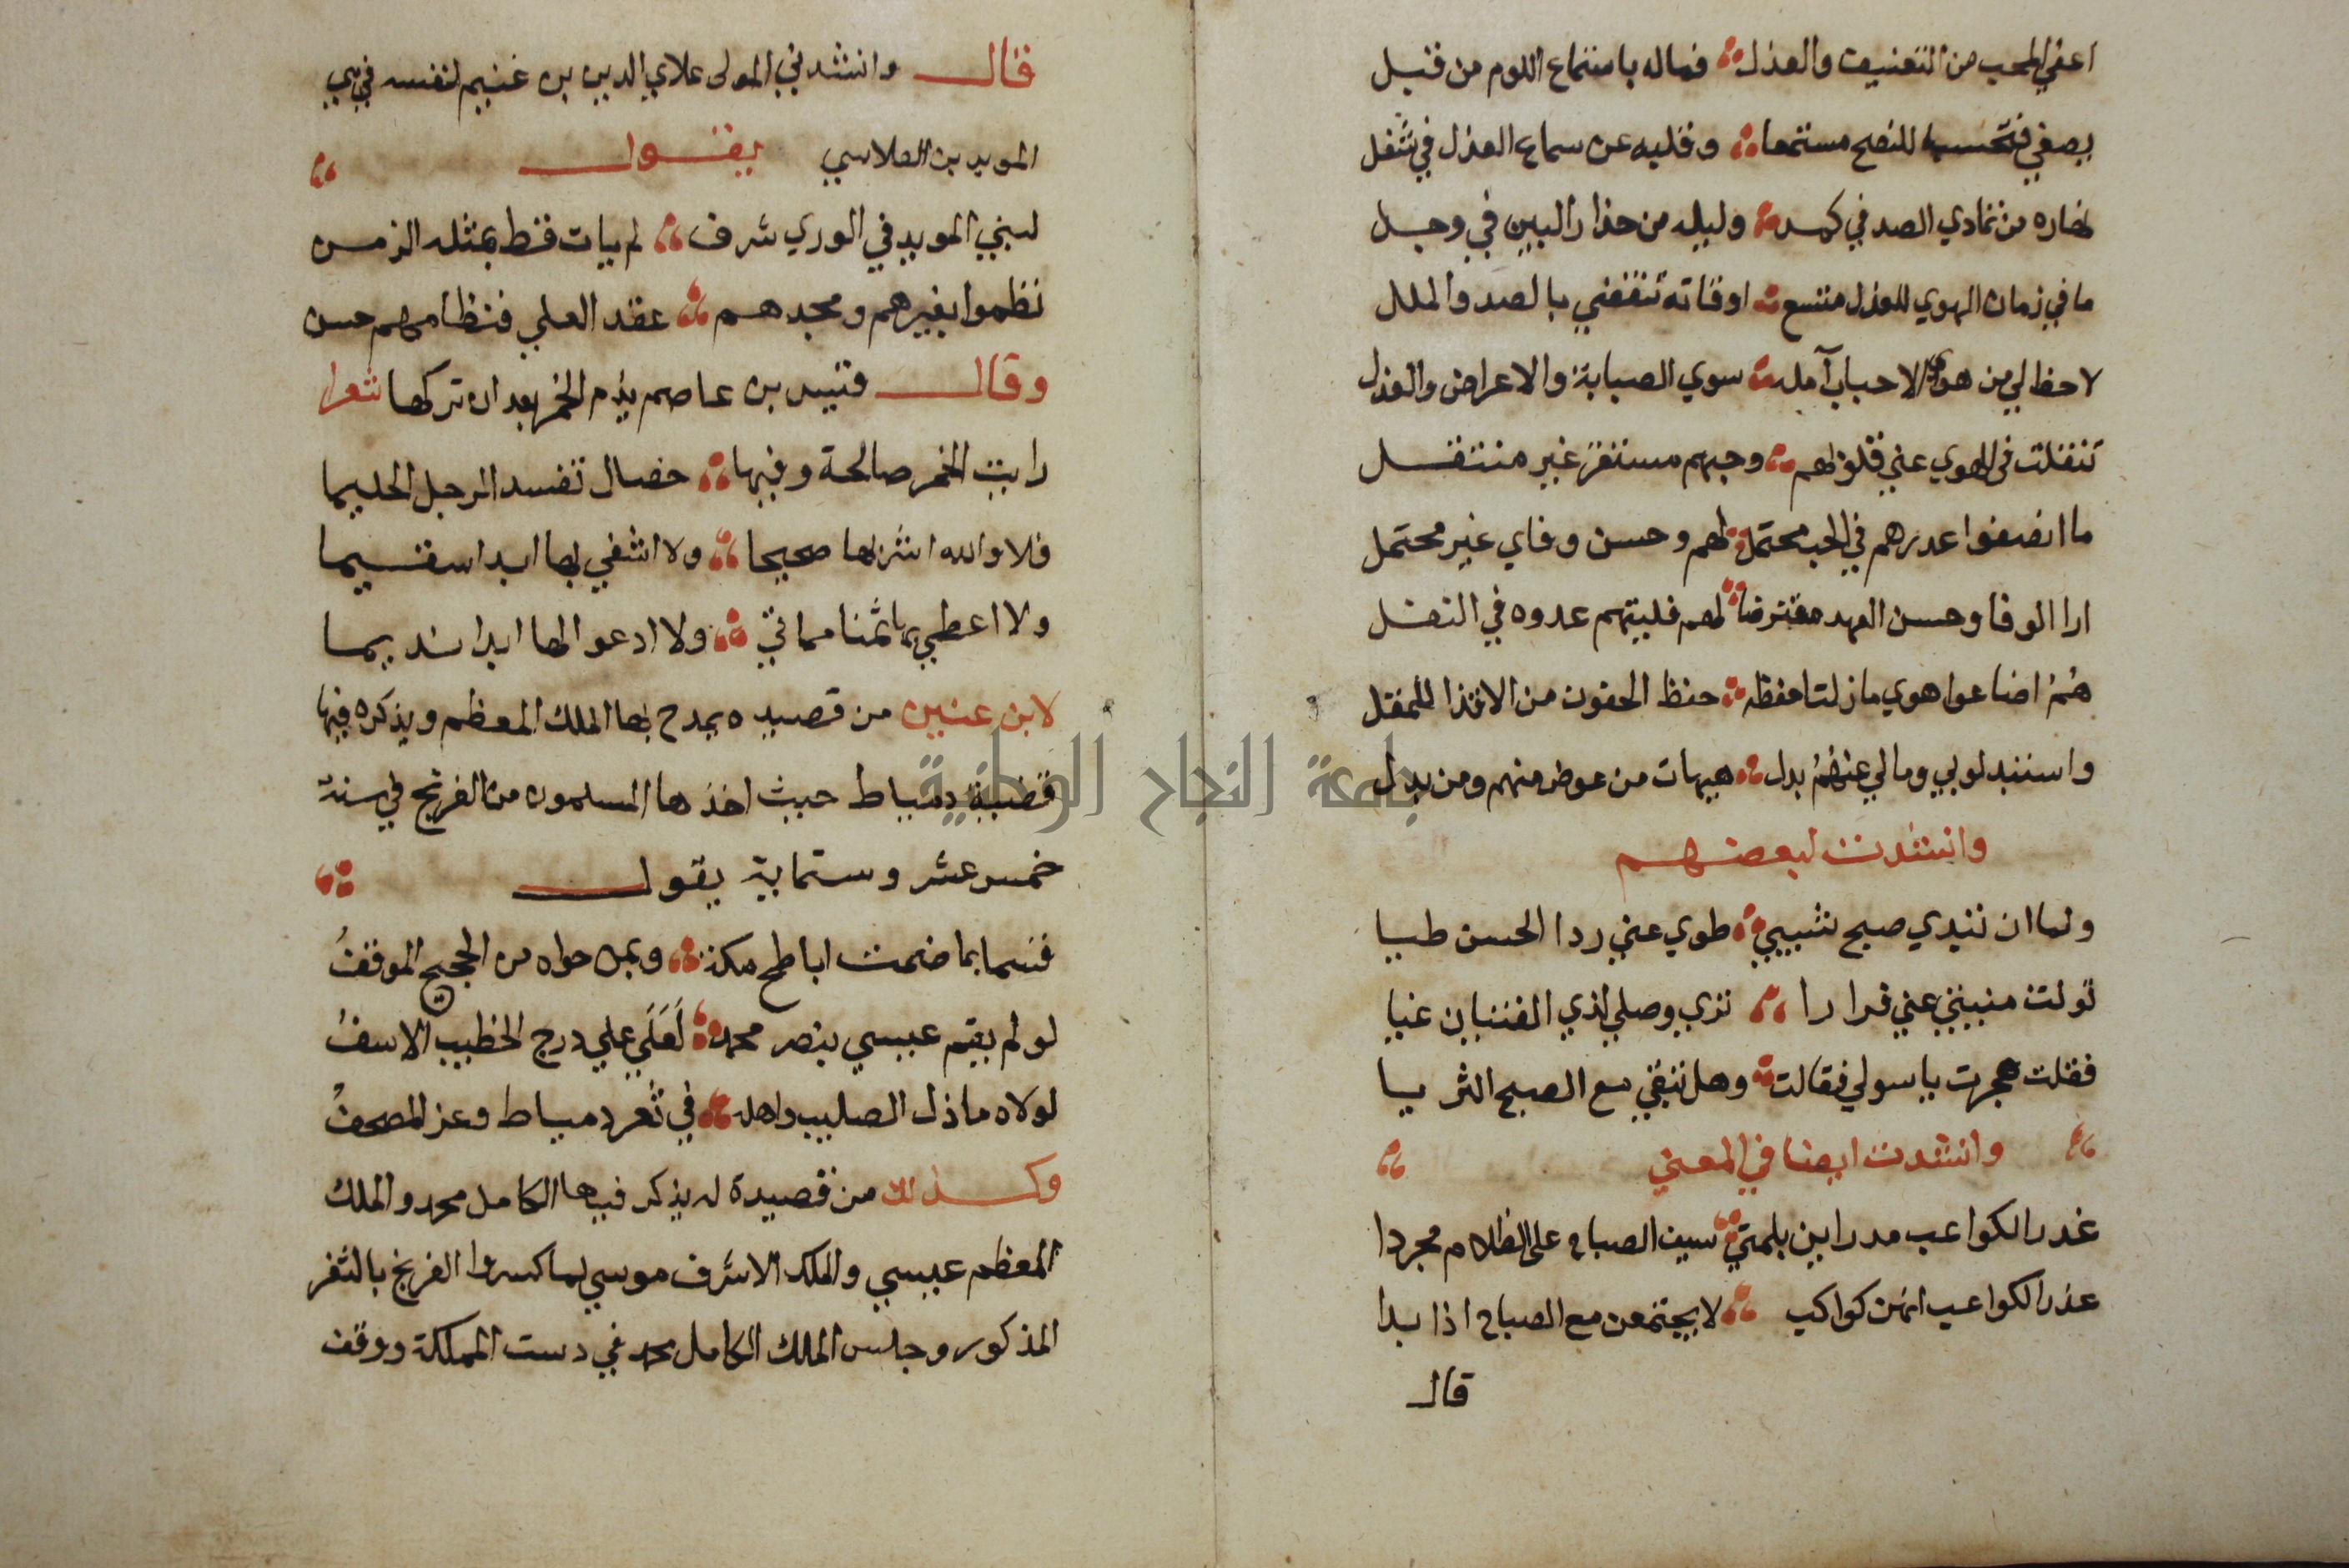 اعفي المحب من التعنيف والعذل فماله باستماع اللوم من قبل
يصغي فتحسبه للنصح مستمعا وقلبه عن سماع العذل في شغل
نهاره من تمادي الصد في كمد وليله من حذار البين في وجل
ما في زمان الهوي للعذل متسع اوقاته تنقضي بالصد والملل
لا حظ لي من هوي الاحباب آمله سوي الصبابة والاعراض والعذل
تنقلت في الهوي عني قلوبهم وحبهم مستقر غير منتقل
ما انصفوا عدرهم في الحب محتمل لهم وحسن وفاي غير محتمل
ارا الوفا وحسن العهد مفترضا لهم فليتهم عدوه في النفل
هم اضاعوا هوي ما زلت احفظه حفظ الجفون من الاقذا للمقل
واستبدلوا بي وما لي عنهم بدل هيهات من عوض منهم ومن بدل
وانشدت لبعضهم
ولما ان تبدي صبح شيبي طوي عني ردا الحسن طيا
تولت منيتي عني فرارا تري وصلي لذي الفتيان غيا
فقلت هجرت يا سولي فقالت وهل تبقي مع الصبح الثريا
وانشدت ايضا في المعني
غدر الكواعب مد راين بلمتي سيف الصباح علي الظلام مجردا
عذر الكواعب انهن كواكب لا يجتمعن مع الصباح اذا بدا
قال
قال وانشدني المولي علاي الدين بن غنيم لنفسه في بني
المويد بن القلانسي يقول
لبني المويد في الوري شرف لم يات قط بمثله الزمن
نظموا بغيرهم ومجدهم عقد العلي فنظامهم حسن
وقال قيس بن عاصم يذم الخمر بعد ان تركها شعرا
رايت الخمر صالحة وفيها خصال تفسد الرجل الحليما
فلا والله اشربها صحيحا ولا اشفي بها ابدا سقيما
ولا اعطي بها ثمنا مماتي ولا ادعوا لها ابدا نديما
لابن عنين من قصيده يمدح بها الملك المعظم ويذكره فيها
قضية دمياط حيث اخذها المسلمون من الفرنج في سنة
خمس عشر وستماية يقول
قسما بما ضمت اباطح مكة وبمن حواه من الحجيج الموقف
لو لم يقم عيسي بنصر محمد لعلي علي درج الخطيب الاسقف
لولاه ما ذل الصليب واهله في ثغر دمياط وعز المصحف
وكذلك من قصيدة له يذكر فيها الكامل محمد والملك
المعظم عيسي والملك الاشرف موسي لما كسروا الفرنج بالثغر
المذكور وجلس الملك الكامل محمد في دست المملكة ووقف
جامعة النجاح الوطنية